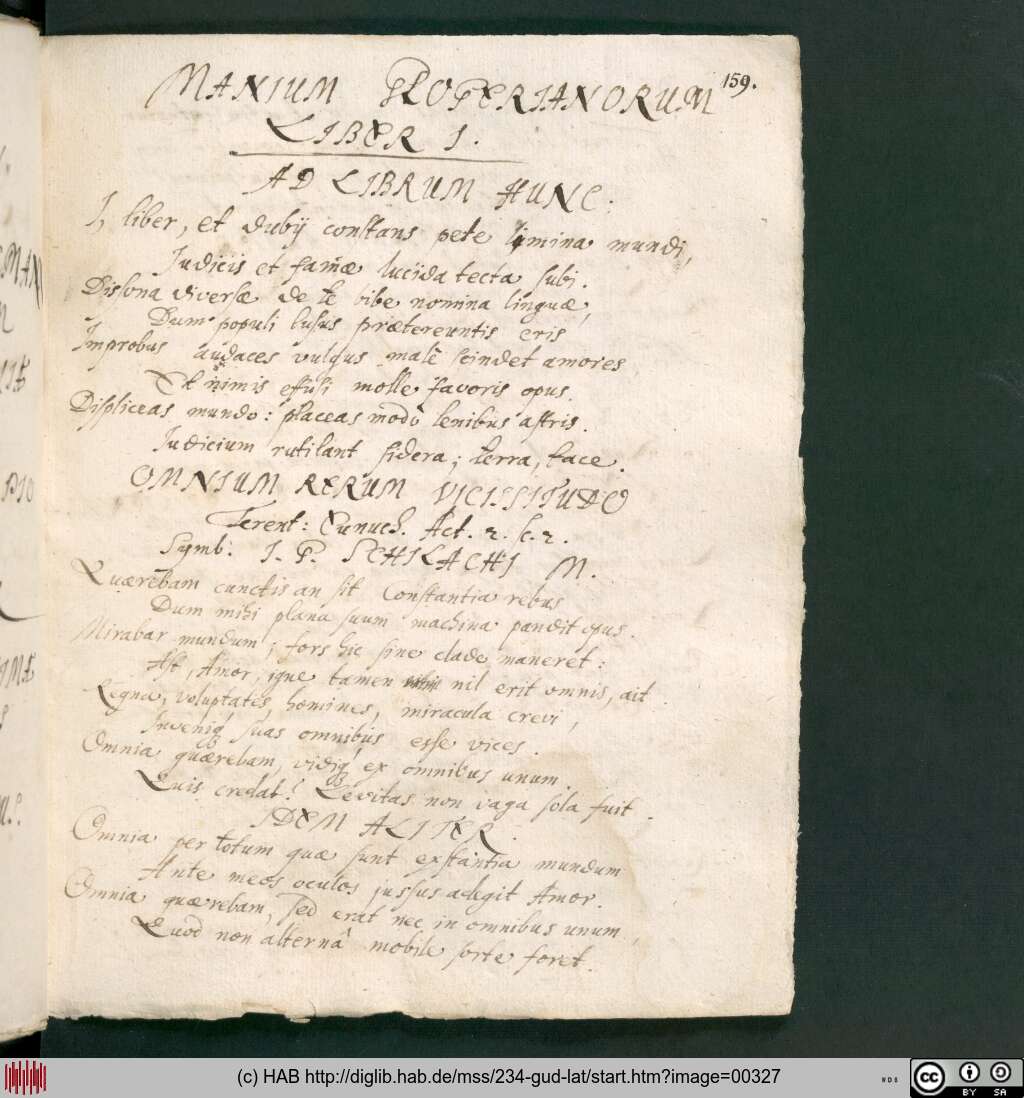 159.
MANIUM PROPERIANORUM
LIBER I.
AD LIBRUM HUNC.
I, liber, et dubij constans pete limina mundi,
Judicijs et famæ lucida tecta subi.
Dissona diversæ de te bibe nomina linguæ,
Dum populi lusus prætereuntis eris
Improbus audaces vulgus malè scindet amores
Et nimis effusi molle favoris opus.
Displiceas mundo: placeas modò lenibus astris.
Judicium rutilant sidera; terra, tace.
OMNIUM RERUM VICISSITUDO
Terent: Eunuch. Act. 2. sc. 2.
Symb: I. P. SCHILACHI M.
Quærebam cunctis an sit Constantia rebus
Dum mihi plana suum machina pandit opus.
Mirabar mundum; fors hic sine clade maneret:
Ast, Amor, igne tamen nil erit omnis, ait.
Regna, voluptates, homines, miracula crevi,
Inveniq; suas omnibus esse vices.
Omnia quærebam, vidiq; ex omnibus unum.
Quis credat! Levitas non vaga sola fuit.
IDEM ALITER.
Omnia per totum quæ sunt exstantia mundum
Ante meos oculos jussus adegit Amor.
Omnia quærebam, sed erat nec in omnibus unum,
Quod non alternâ mobile sorte foret.
(c) HAB http://diglib.hab.de/mss/234-gud-lat/start.htm?image=00327
cc BY SA